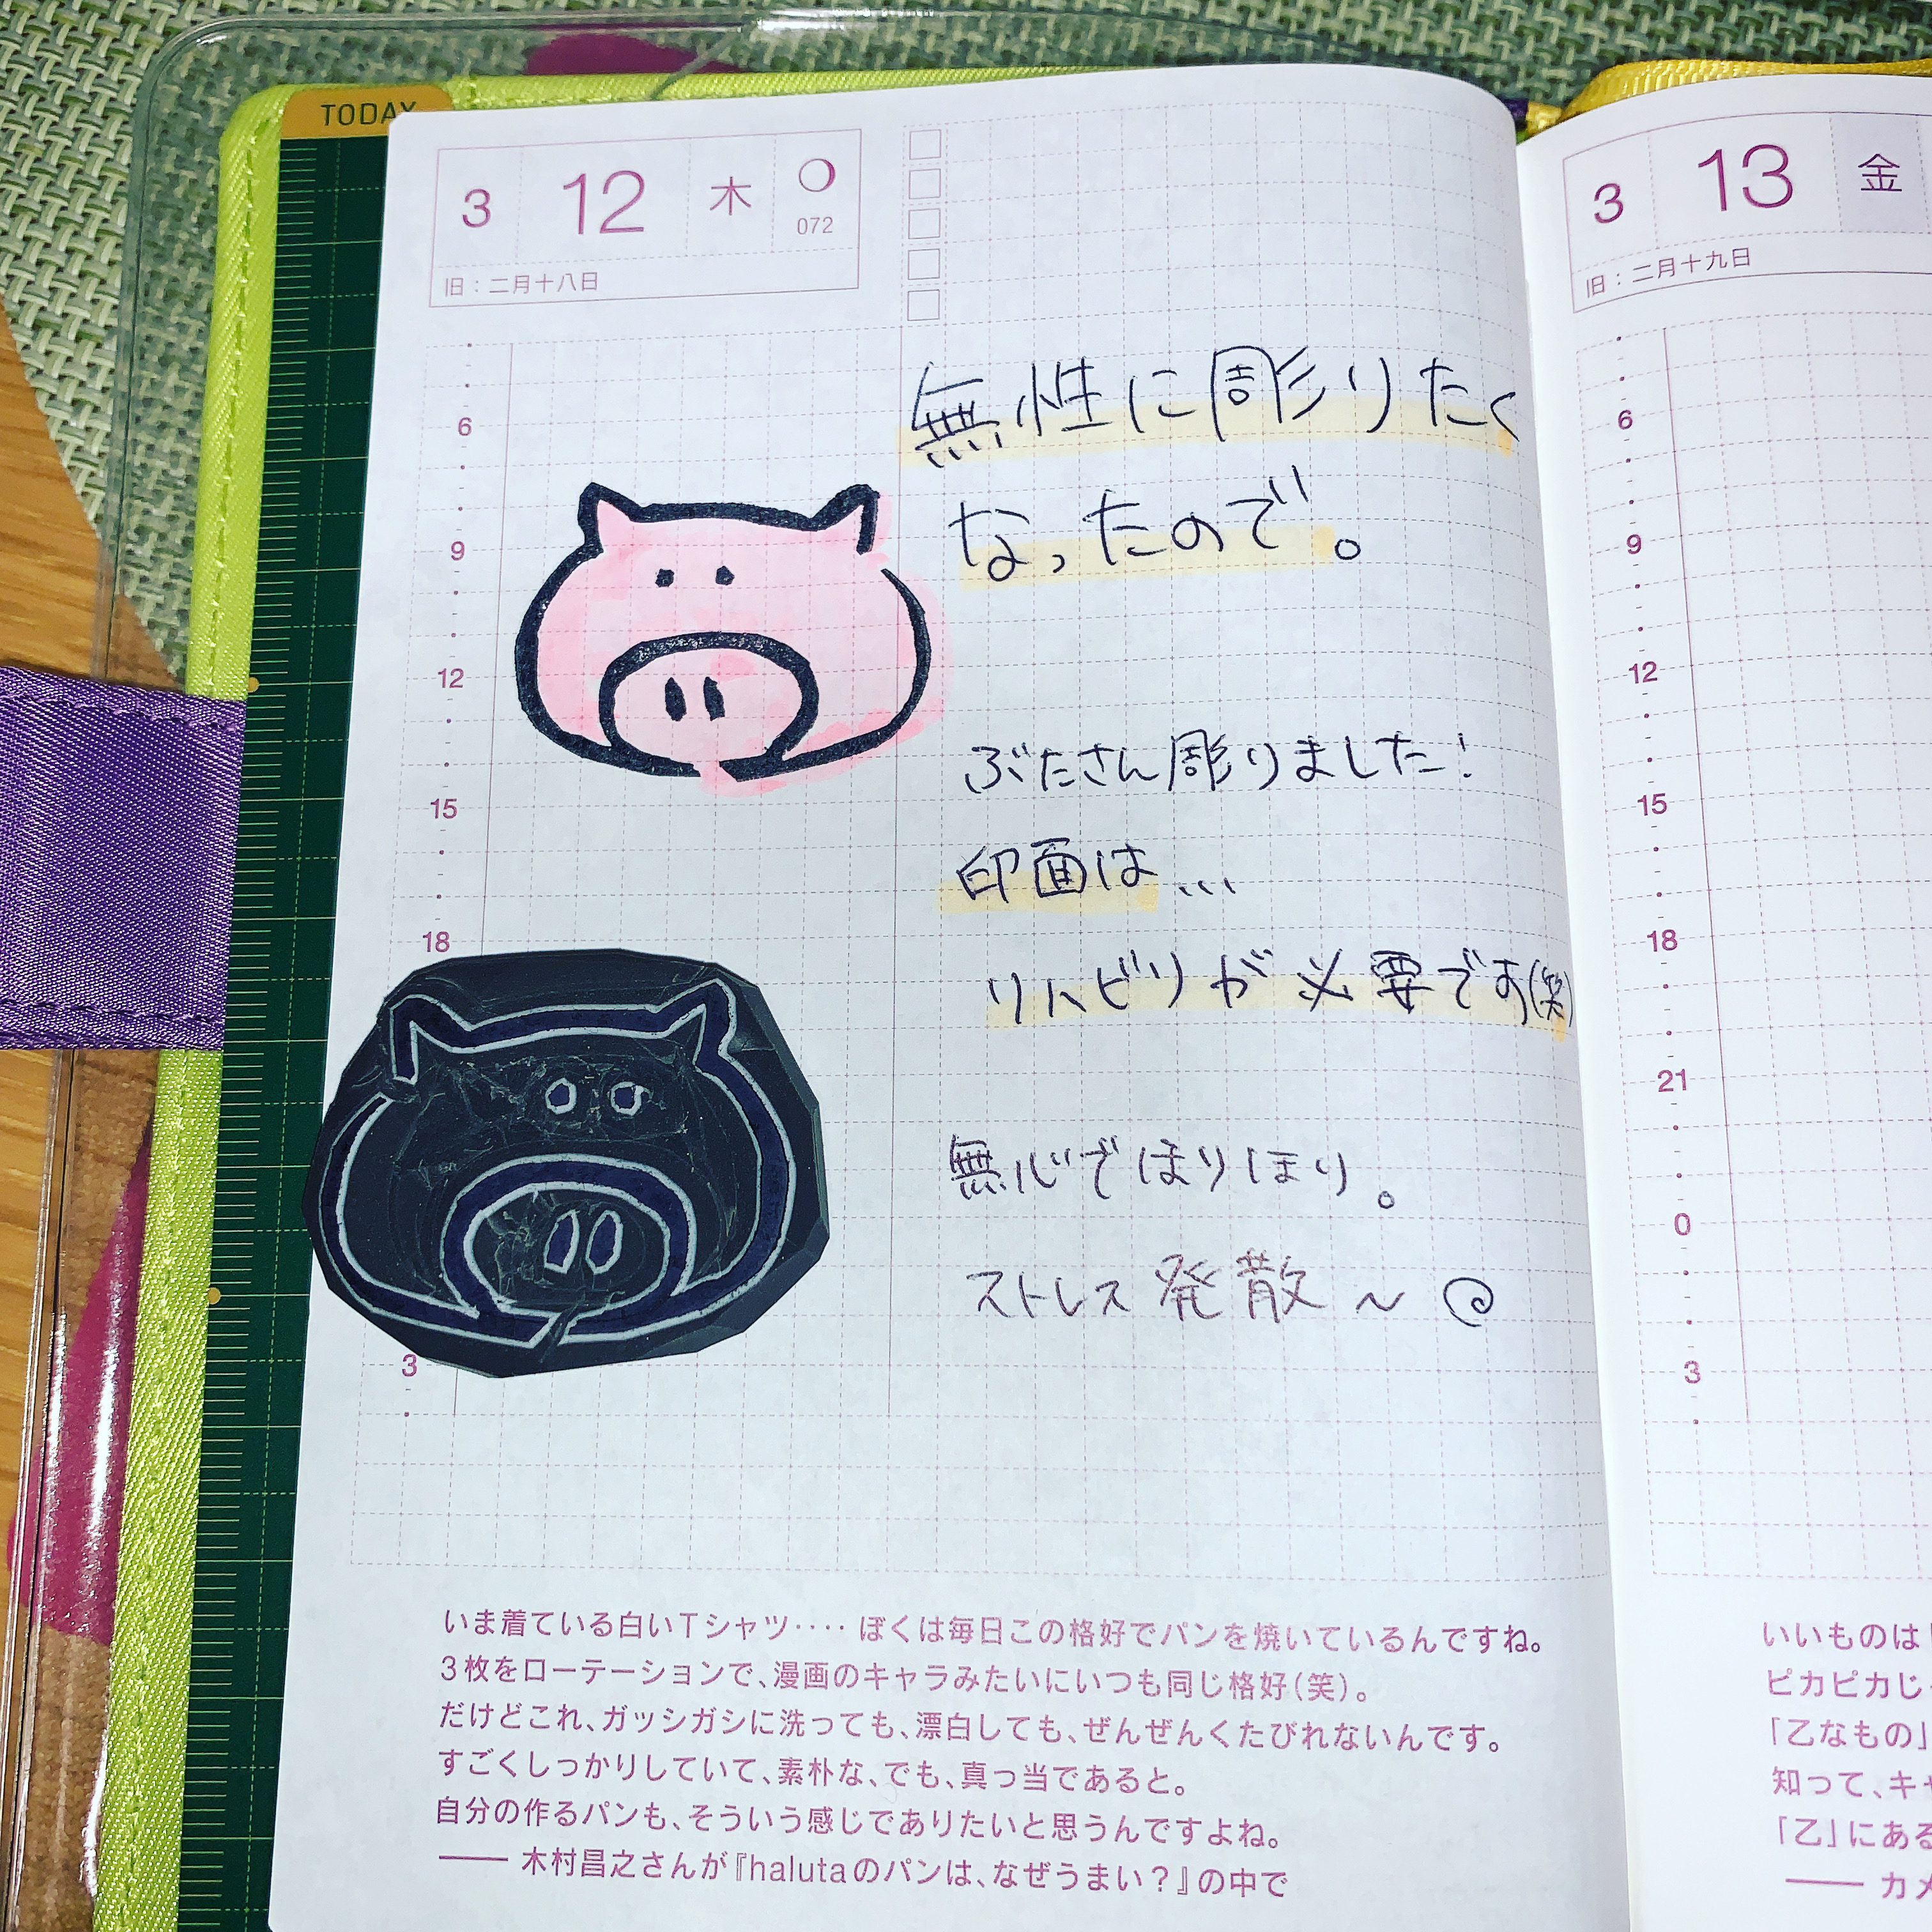 TODAY
3 12 木
072
旧：二月十八日
無性に彫りたく
なったので。
ぶたさん彫りました!
印面は...
リハビリが必要です(笑)
無心でほりほり。
ストレス発散〜
6
9
12
15
18
3
いま着ている白いTシャツ‥‥ ぼくは毎日この格好でパンを焼いているんですね。
3枚をローテーションで、漫画のキャラみたいにいつも同じ格好(笑)。
だけどこれ、ガッシガシに洗っても、漂白しても、ぜんぜんくたびれないんです。
すごくしっかりしていて、素朴な、でも、真っ当であると。
自分の作るパンも、そういう感じでありたいと思うんですよね。
── 木村昌之さんが『halutaのパンは、なぜうまい？』の中で
3 13 金
旧：二月十九日
6
9
12
15
18
21
0
3
いいものは
ピカピカじ
「乙なもの」
知って、キ
「乙」にある
── カメ